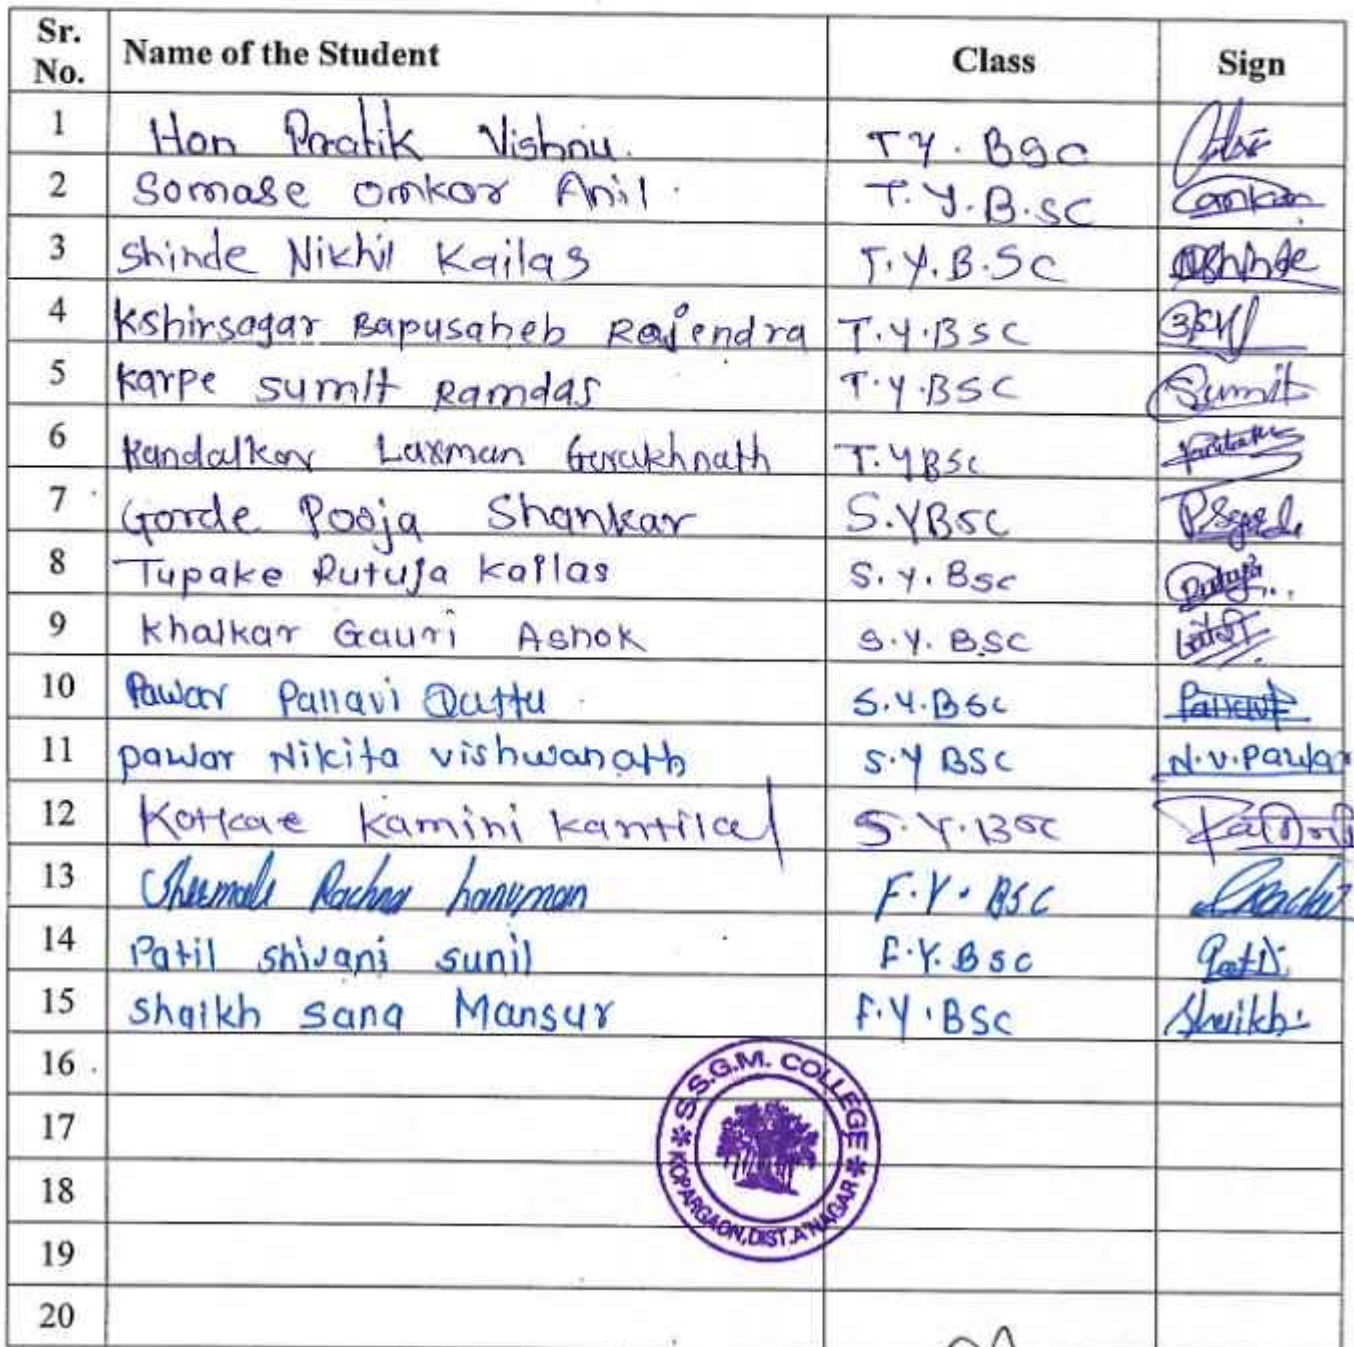 Sr. No. Name of the Student Class Sign
1 Hon Pratik Vishnu. T Y. BSC
2 Somase Omkar Anil. T. Y. B.SC Omkar
3 Shinde Nikhil Kailas T. Y. B.SC NShinde
4 Kshirsagar Bapusaheb Rajendra T.Y.BSC
5 Karpe Sumit Ramdas T.Y.BSC Sumit
6 Kandalkar Laxman Gorakhnath T.YBSC
7 Gorde Pooja Shankar S.YBSC
8 Tupake Rutuja Kailas S. Y. BSC Rutuja
9 Khalkar Gauri Ashok S.Y. BSC
10 Pawar Pallavi Dattu S.Y.BSC Pallavi
11 Pawar Nikita Vishwanath S.Y BSC N.V.Pawar
12 Kamini Kantilal S.Y.BSC
13 Rachna hanuman F.Y. BSC
14 Patil Shivani Sunil F.Y.BSC Patil
15 Shaikh Sana Mansur F.Y.BSC Shaikh
16
17
18
19
20
S.S.G.M. COLLEGE
KOPARGAON, DIST.A'NAGAR